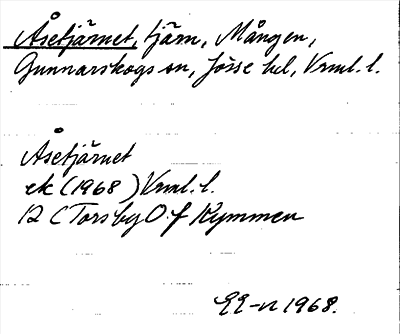 Åsetjärnet, tjärn, Mången,
Gunnarskogs sn, Jösse hd, Vrml. l.
Åsetjärnet
ek (1968) Vrml. l.
12 C Torsby O. f Kymmen
1968.